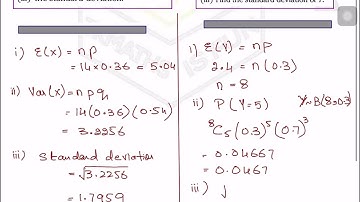 (iii) Find the standard deviation of Y.
i) E(x) = np
= 14×0.36 = 5.04
ii) Var(x) = npq
= 14(0.36)(0.54)
= 3.2256
iii) Standard deviation
= √3.2256
= 1.7959
i) E(Y) = np
2.4 = n(0.3)
n = 8
ii) P(Y=5) Y~B(8,0.3)
⁸C₅(0.3)⁵(0.7)³
= 0.04667
= 0.0467
iii)